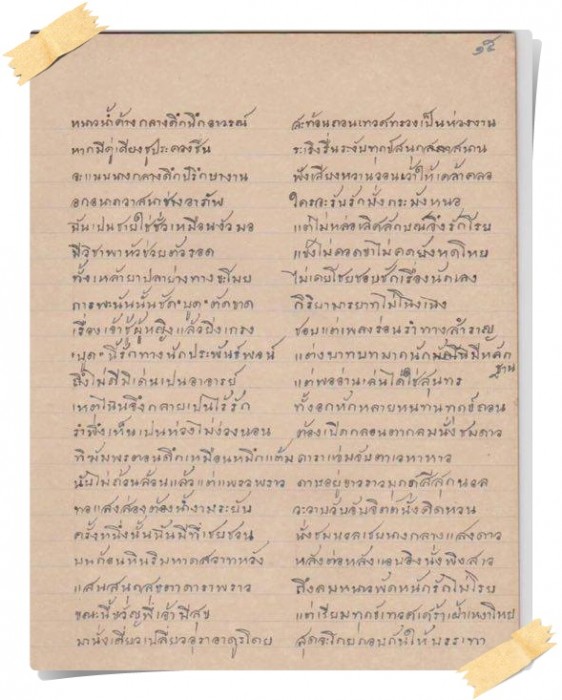 ๑๕
หนาวน้ำค้างกลางดึกนึกอาวรณ์ สะท้อนถอนเทวศทรวงเป็นห่วงงาน
หากมีคู่เสียงชูประคองชื่น ระเริงรื่นระงับทุกข์สนุกสนาน
จะแนบนางกลางดึกปรึกษางาน ฟังเสียงหวานวอนเว้าให้เคล้าคลอ
อกอนาถวาสนาช่างอาภัพ ใครจะรับรักมั่งกระมังหนอ
ฉันเป็นชายใช่ชั่วเหมือนงัวมอ แต่ไม่หล่อเลิศลักษณจึงรักโรย
มีวิชาพาหัวช่วยตัวรอด แข้งไม่คอดขาไม่คดยังหดโหย
ทั้งเหล้ายาปลาย่างทางขะโมย ไม่เคยโชยชอบชักเรื่องนักเลง
การพะนันนั้นชัด "บูด" ตัดขาด กิริยามารยาทไม่โฉงเฉง
เรื่องเจ้าชู้ผู้หญิงแล้วยิ่งเกรง ชอบแต่เพลงร่อนรำทางสำราญ
"บูด" นี้รักทางนักประพันธ์พจน์ แต่งบาทบทมากนักมีหลักฐาน
ถึงไม่ดีมีเด่นเปนอาจารย์ แต่พออ่านเล่นได้ใช่สุนทร
เหตุไฉนจึงกลายเป็นไร้รัก ทั้งอกหักหลายหนทนทุกข์ถอน
รำพึงเห็นเปนห่วงไม่ง่วงนอน ต้องเปิดกลอนตากลมนั่งชมดาว
พิฆัมพรตอนดึกเหมือนหมึกแต้ม ดาราแจ่มจับตาเวหาหาว
นับไม่ถ้วนล้วนแล้วแต่แพรวพราว
ทอแสงส่องต้องน้ำงามระยับ วะวาบวับจับจิตต์นั่งคิดหวน
ครั้งหนึ่งนั้นฉันมีที่เชยชวน นั่งชมนวลเชยนางกลางแสงดาว
บนก้อนหินริมหาดสวาทหวัง หลังต่อหลังเอนอิงนั่งพิงสาว
แสนสนุกสุขตาดาราพราว ถึงลมหนาวพัดหนักรักไม่โรย
ขณะนี้ขวัญพี่เจ้ามีสุข แต่เรียมทุกข์เทวศเศร้าเฝ้าหงาโหย
มานั่งเสียวเปลี่ยวอุราอาดูรโดย